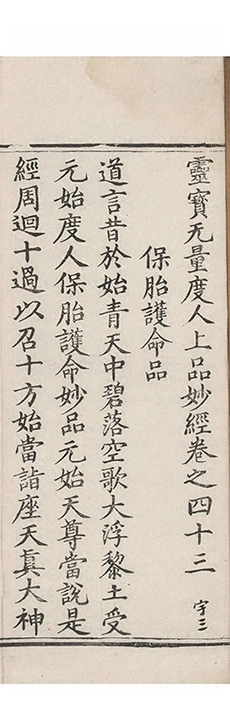 靈寶无量度人上品妙經卷之四十三 字三
保胎護命品
道言昔於始青天中碧落空歌大浮黎土受
元始度人保胎護命妙品元始天尊當說是
經周迴十過以召十方始當詣座天真大神